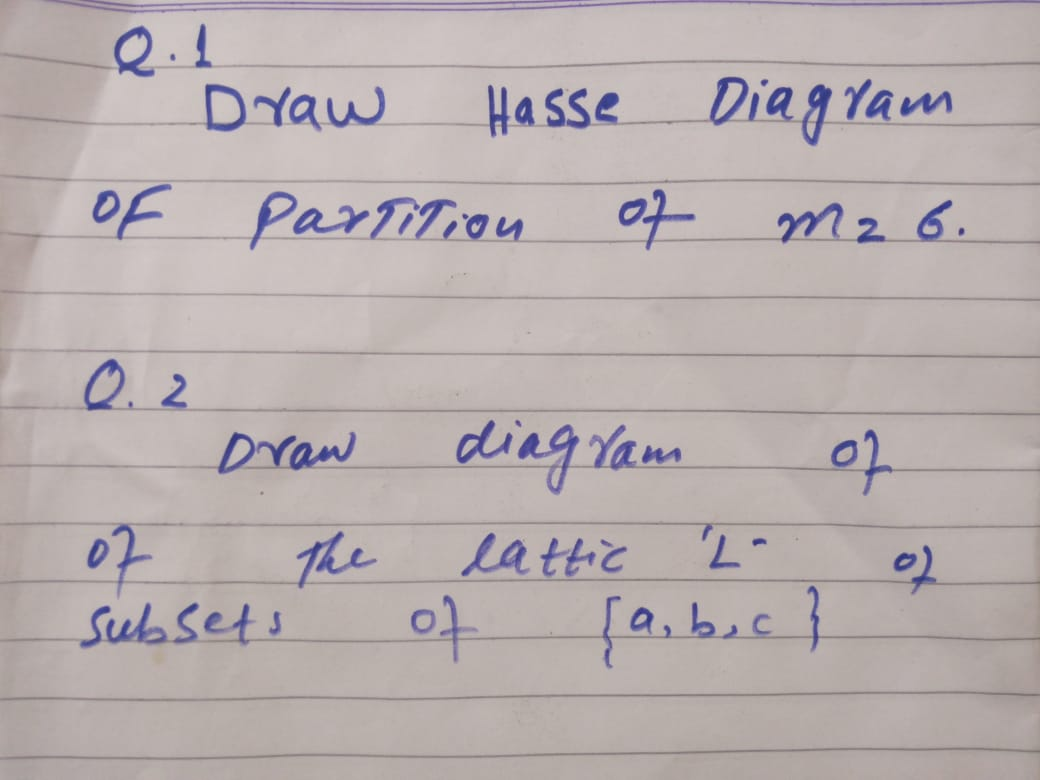 Q.1
Draw Hasse Diagram
of Partition of m = 6.
Q. 2
Draw diagram of
of the lattic 'L- of
subsets of {a, b, c}